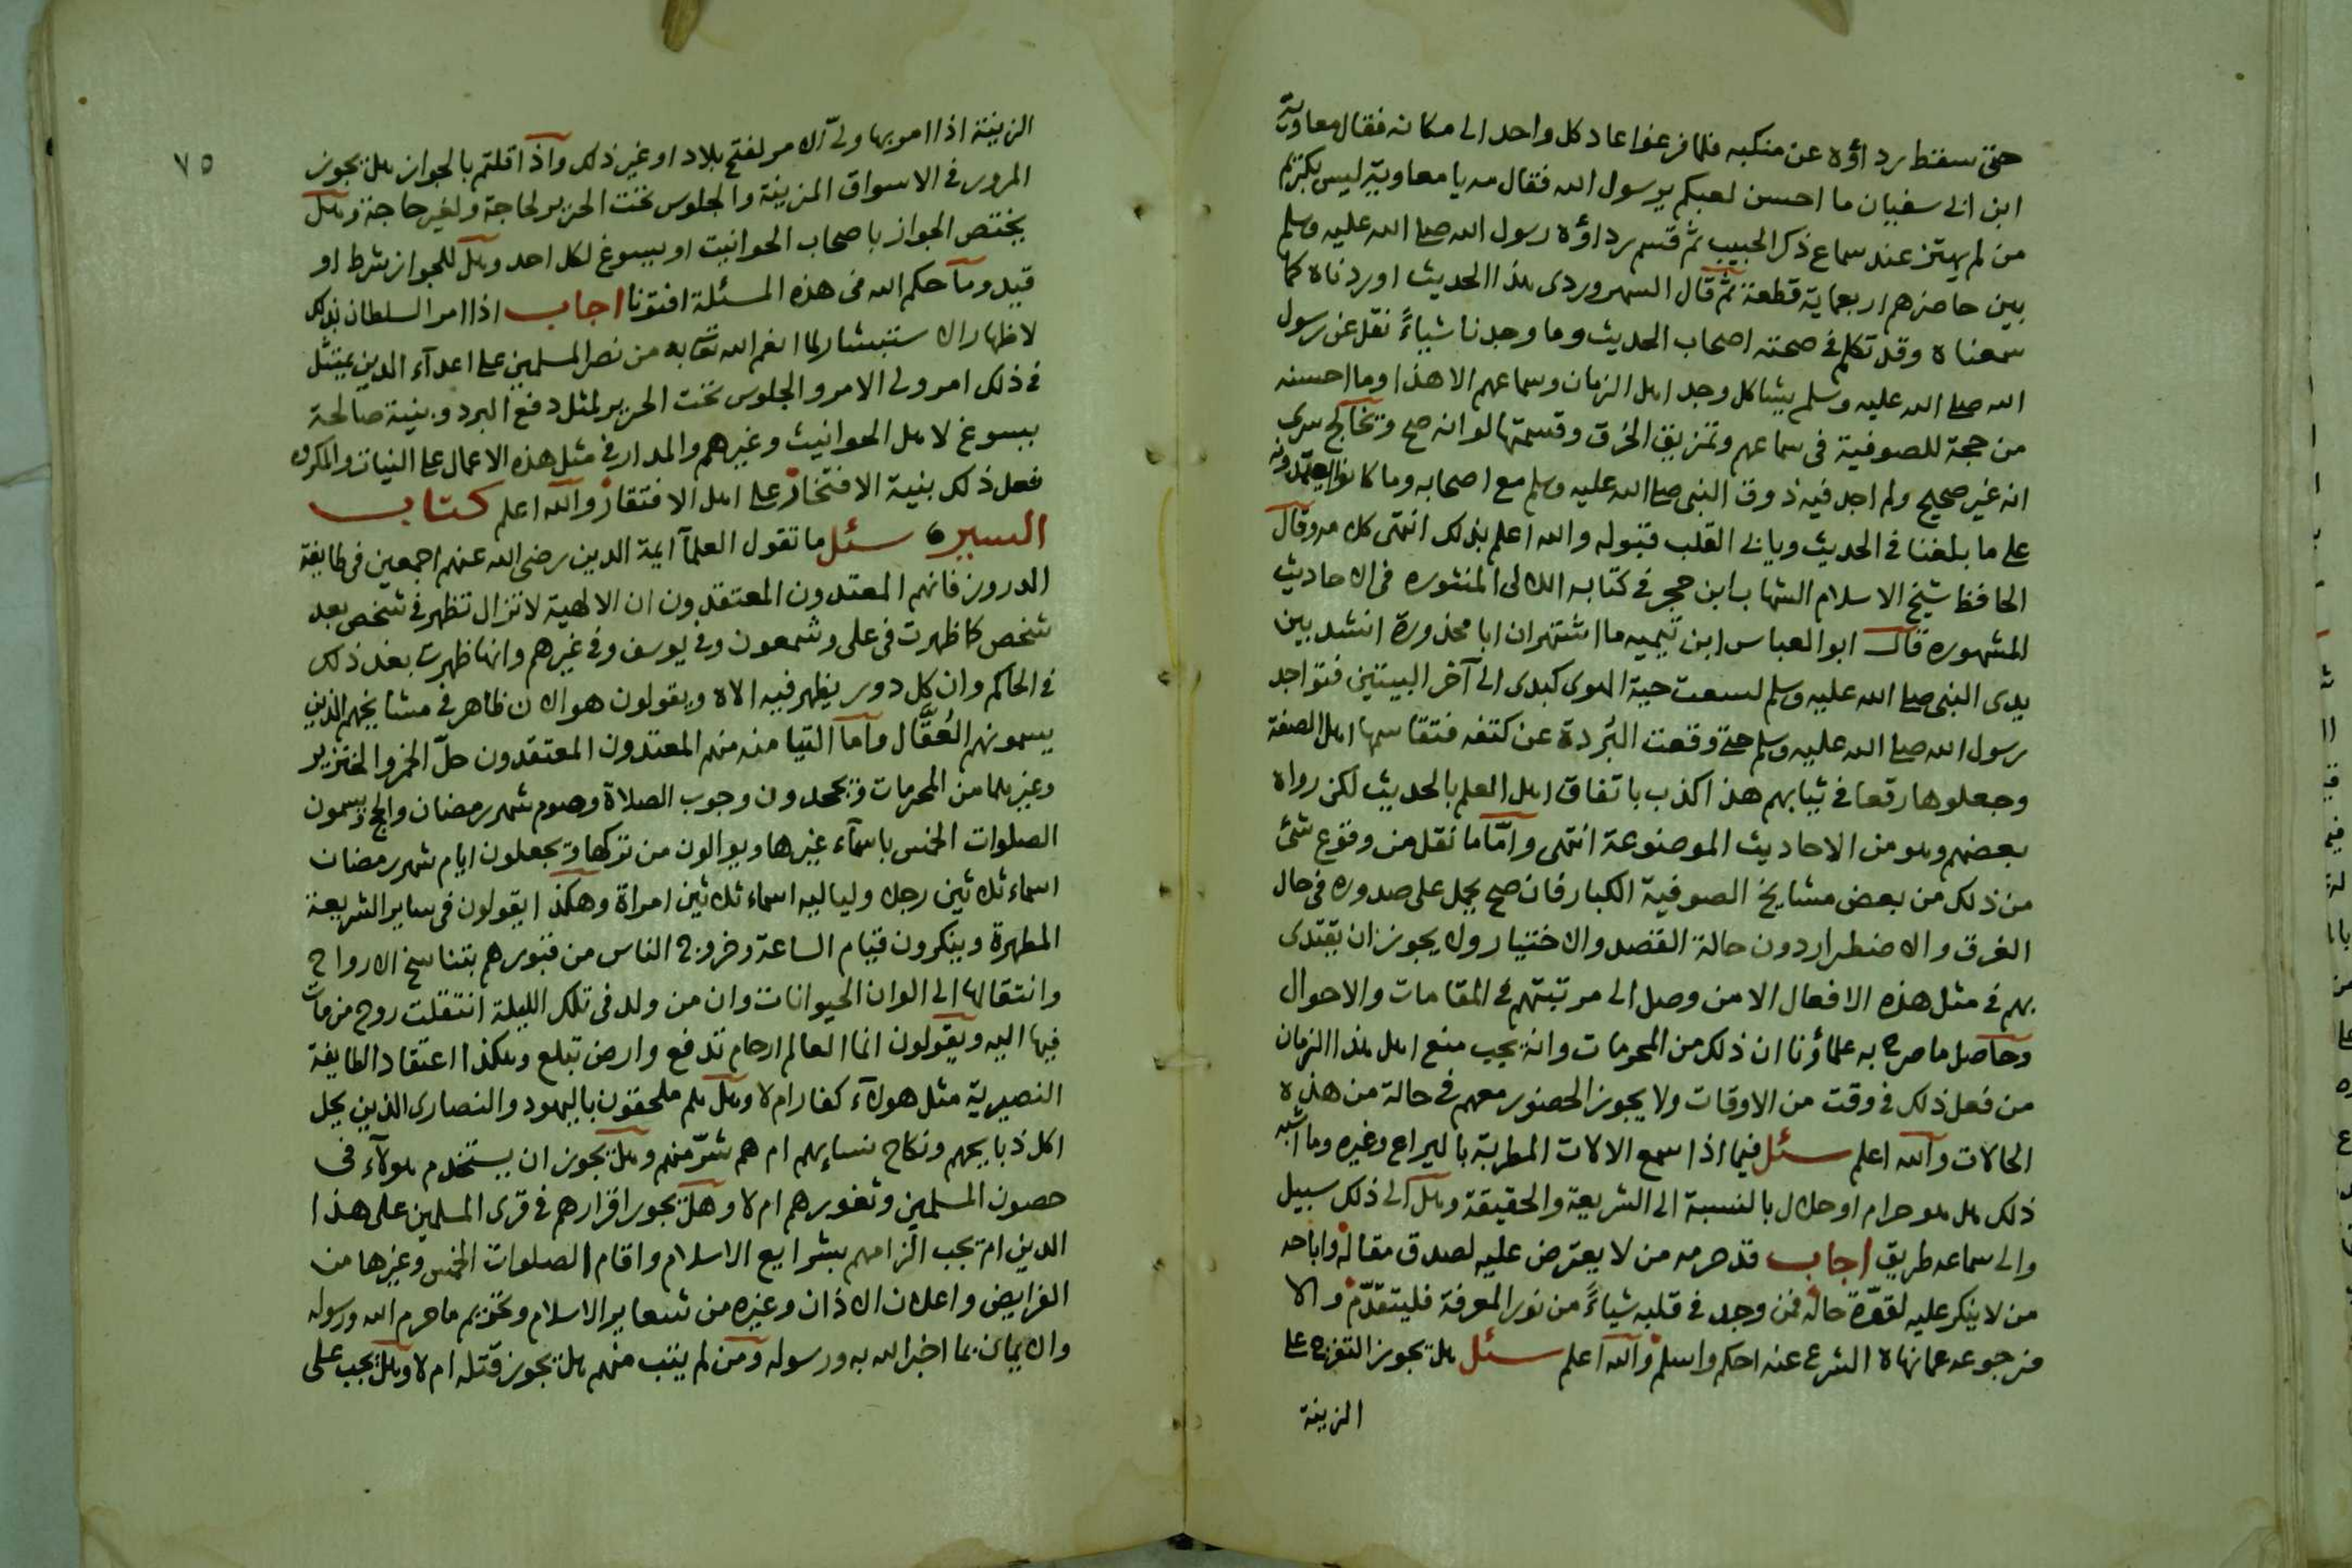 حتى سقط رداؤه عن منكبه فلما فرغوا عاد كل واحد الى مكانه فقال معاوية
ابن ابى سفيان ما احسن لعبكم يرسول الله فقال مه يا معاوية ليس بكريم
من لم يهتز عند سماع ذكر الحبيب ثم قسم رداؤه رسول الله صلى الله عليه وسلم
بين حاضرهم اربعماية قطعة ثم قال السهروردى هذا الحديث اوردناه كما
سمعناه وقد تكلم فى صحته اصحاب الحديث وما وجدنا شياءً نقل عن رسول
الله صلى الله عليه وسلم يشاكل وجد اهل الزمان وسماعهم الا هذا وما احسنه
من حجة للصوفية فى سماعهم وتمزيق الخرق وقسمتها لو انه صح وتخالج سرى
انه غير صحيح ولم اجد فيه ذوق النبى صلى الله عليه وسلم مع اصحابه وما كانوا يعتمدونه
على ما بلغنا فى الحديث ويابى القلب قبوله والله اعلم بذلك انتهى كلامه وقال
الحافظ شيخ الاسلام الشهاب ابن حجر فى كتابه اللالى المنثوره فى الاحاديث
المشهوره قال ابو العباس ابن تيميه ما اشتهر ان ابا محذورة انشد بين
يدى النبى صلى الله عليه وسلم لسعت حية الهوى كبدى الى آخر البيتين فتواجد
رسول الله صلى الله عليه وسلم حتى وقعت البُردة عن كتفه فتقاسمها اهل الصفة
وجعلوها رقعا فى ثيابهم هذا كذب باتفاق اهل العلم بالحديث لكن رواه
بعضهم وهو من الاحاديث الموضوعة انتهى وامّا ما نقل من وقوع شئ
من ذلك من بعض مشايخ الصوفية الكبار فان صح يحمل على صدوره فى حال
الغرق والاضطرار دون حالة القصد والاختيار ولا يجوز ان يقتدى
بهم فى مثل هذه الافعال الا من وصل الى مرتبتهم فى المقامات والاحوال
وحاصل ما صرح به علماؤنا ان ذلك من المحرمات وانه يجب منع اهل هذا الزمان
من فعل ذلك فى وقت من الاوقات ولا يجوز الحضور معهم فى حالة من هذه
الحالات والله اعلم سئل فيما اذا سمع الالات المطربة باليراع وغيره وما اشبه
ذلك هل هو حرام او حلال بالنسبة الى الشريعة والحقيقة وهل الى ذلك سبيل
والى سماعه طريق اجاب قد حرمه من لا يعترض عليه لصدق مقاله واباحه
من لا ينكر عليه لقوّة حاله فمن وجد فى قلبه شياءً من نور المعرفة فليتقدّم والا
فرجوعه عما نهاه الشرع عنه احكم واسلم والله اعلم سئل هل يجوز التفرج على
الزينة
٧٥
الزينة اذا امر بها ولىّ الامر لفتح بلاد او غير ذلك واذا قلتم بالجواز هل يجوز
المرور فى الاسواق المزينة والجلوس تحت الحرير لحاجة ولغير حاجة وهل
يختص الجواز باصحاب الحوانيت او يسوغ لكل احد وهل للجواز شرط او
قيد وما حكم الله فى هذه المسئلة افتونا اجاب اذا امر السلطان بذلك
لاظهار الاستبشار لما انعم الله تعالى به من نصر المسلمين على اعدآء الدين يمتثل
فى ذلك امر ولى الامر والجلوس تحت الحرير لمثل دفع البرد وبنية صالحة
يسوغ لاهل الحوانيت وغيرهم والمدار فى مثل هذه الاعمال على النيات والمكروه
فعل ذلك بنية الافتخار على اهل الافتقار والله اعلم كتاب
السير سئل ما تقول العلمآ ايمة الدين رضى الله عنهم اجمعين فى طايفة
الدروز فانهم المعتدون المعتقدون ان الالهية لا تزال تظهر فى شخص بعد
شخص كما ظهرت فى على وشمعون وفى يوسف وفى غيرهم وانها ظهرت بعد ذلك
فى الحاكم وان كل دور يظهر فيه الاه ويقولون هو الان ظاهر فى مشايخهم الذين
يسمونهم العُقَّال واما القيامة منهم المعتدون المعتقدون حلّ الخمر والخنزير
وغيرهما من المحرمات ويجحدون وجوب الصلاة وصوم شهر رمضان والحج ويسمون
الصلوات الخمس باسمآء غيرها ويوالون من تركها ويجعلون ايام شهر رمضان
اسماء ثلاثين رجلا ولياليه اسماء ثلاثين امراة وهكذا يقولون فى ساير الشريعة
المطهرة وينكرون قيام الساعة وخروج الناس من قبورهم بتناسخ الارواح
وانتقالها الى الوان الحيوانات وان من ولد فى تلك الليلة انتقلت روح من مات
فيها اليه ويقولون انما العالم ارحام تدفع وارض تبلع وهكذا اعتقاد الطايفة
النصيرية مثل هولآء كفار ام لا وهل هم ملحقون باليهود والنصارى الذين يحل
اكل ذبايحهم ونكاح نسايهم ام هم شرّ منهم وهل يجوز ان يستخدم هولآء فى
حصون المسلمين وثغورهم ام لا وهل يجوز اقرارهم فى قرى المسلمين على هذا
الدين ام يجب الزامهم بشرايع الاسلام واقام الصلوات الخمس وغيرها من
الفرايض واعلان الاذان وغيره من شعاير الاسلام وتحريم ما حرم الله ورسوله
والايمان بما اخبر الله به ورسوله ومن لم يتب منهم هل يجوز قتله ام لا وهل يجب على